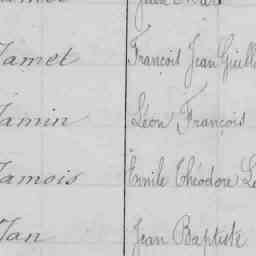 Jamet François Jean Guill
Jamin Léon François
Jamois Emile Théodore L
Jan Jean Baptiste